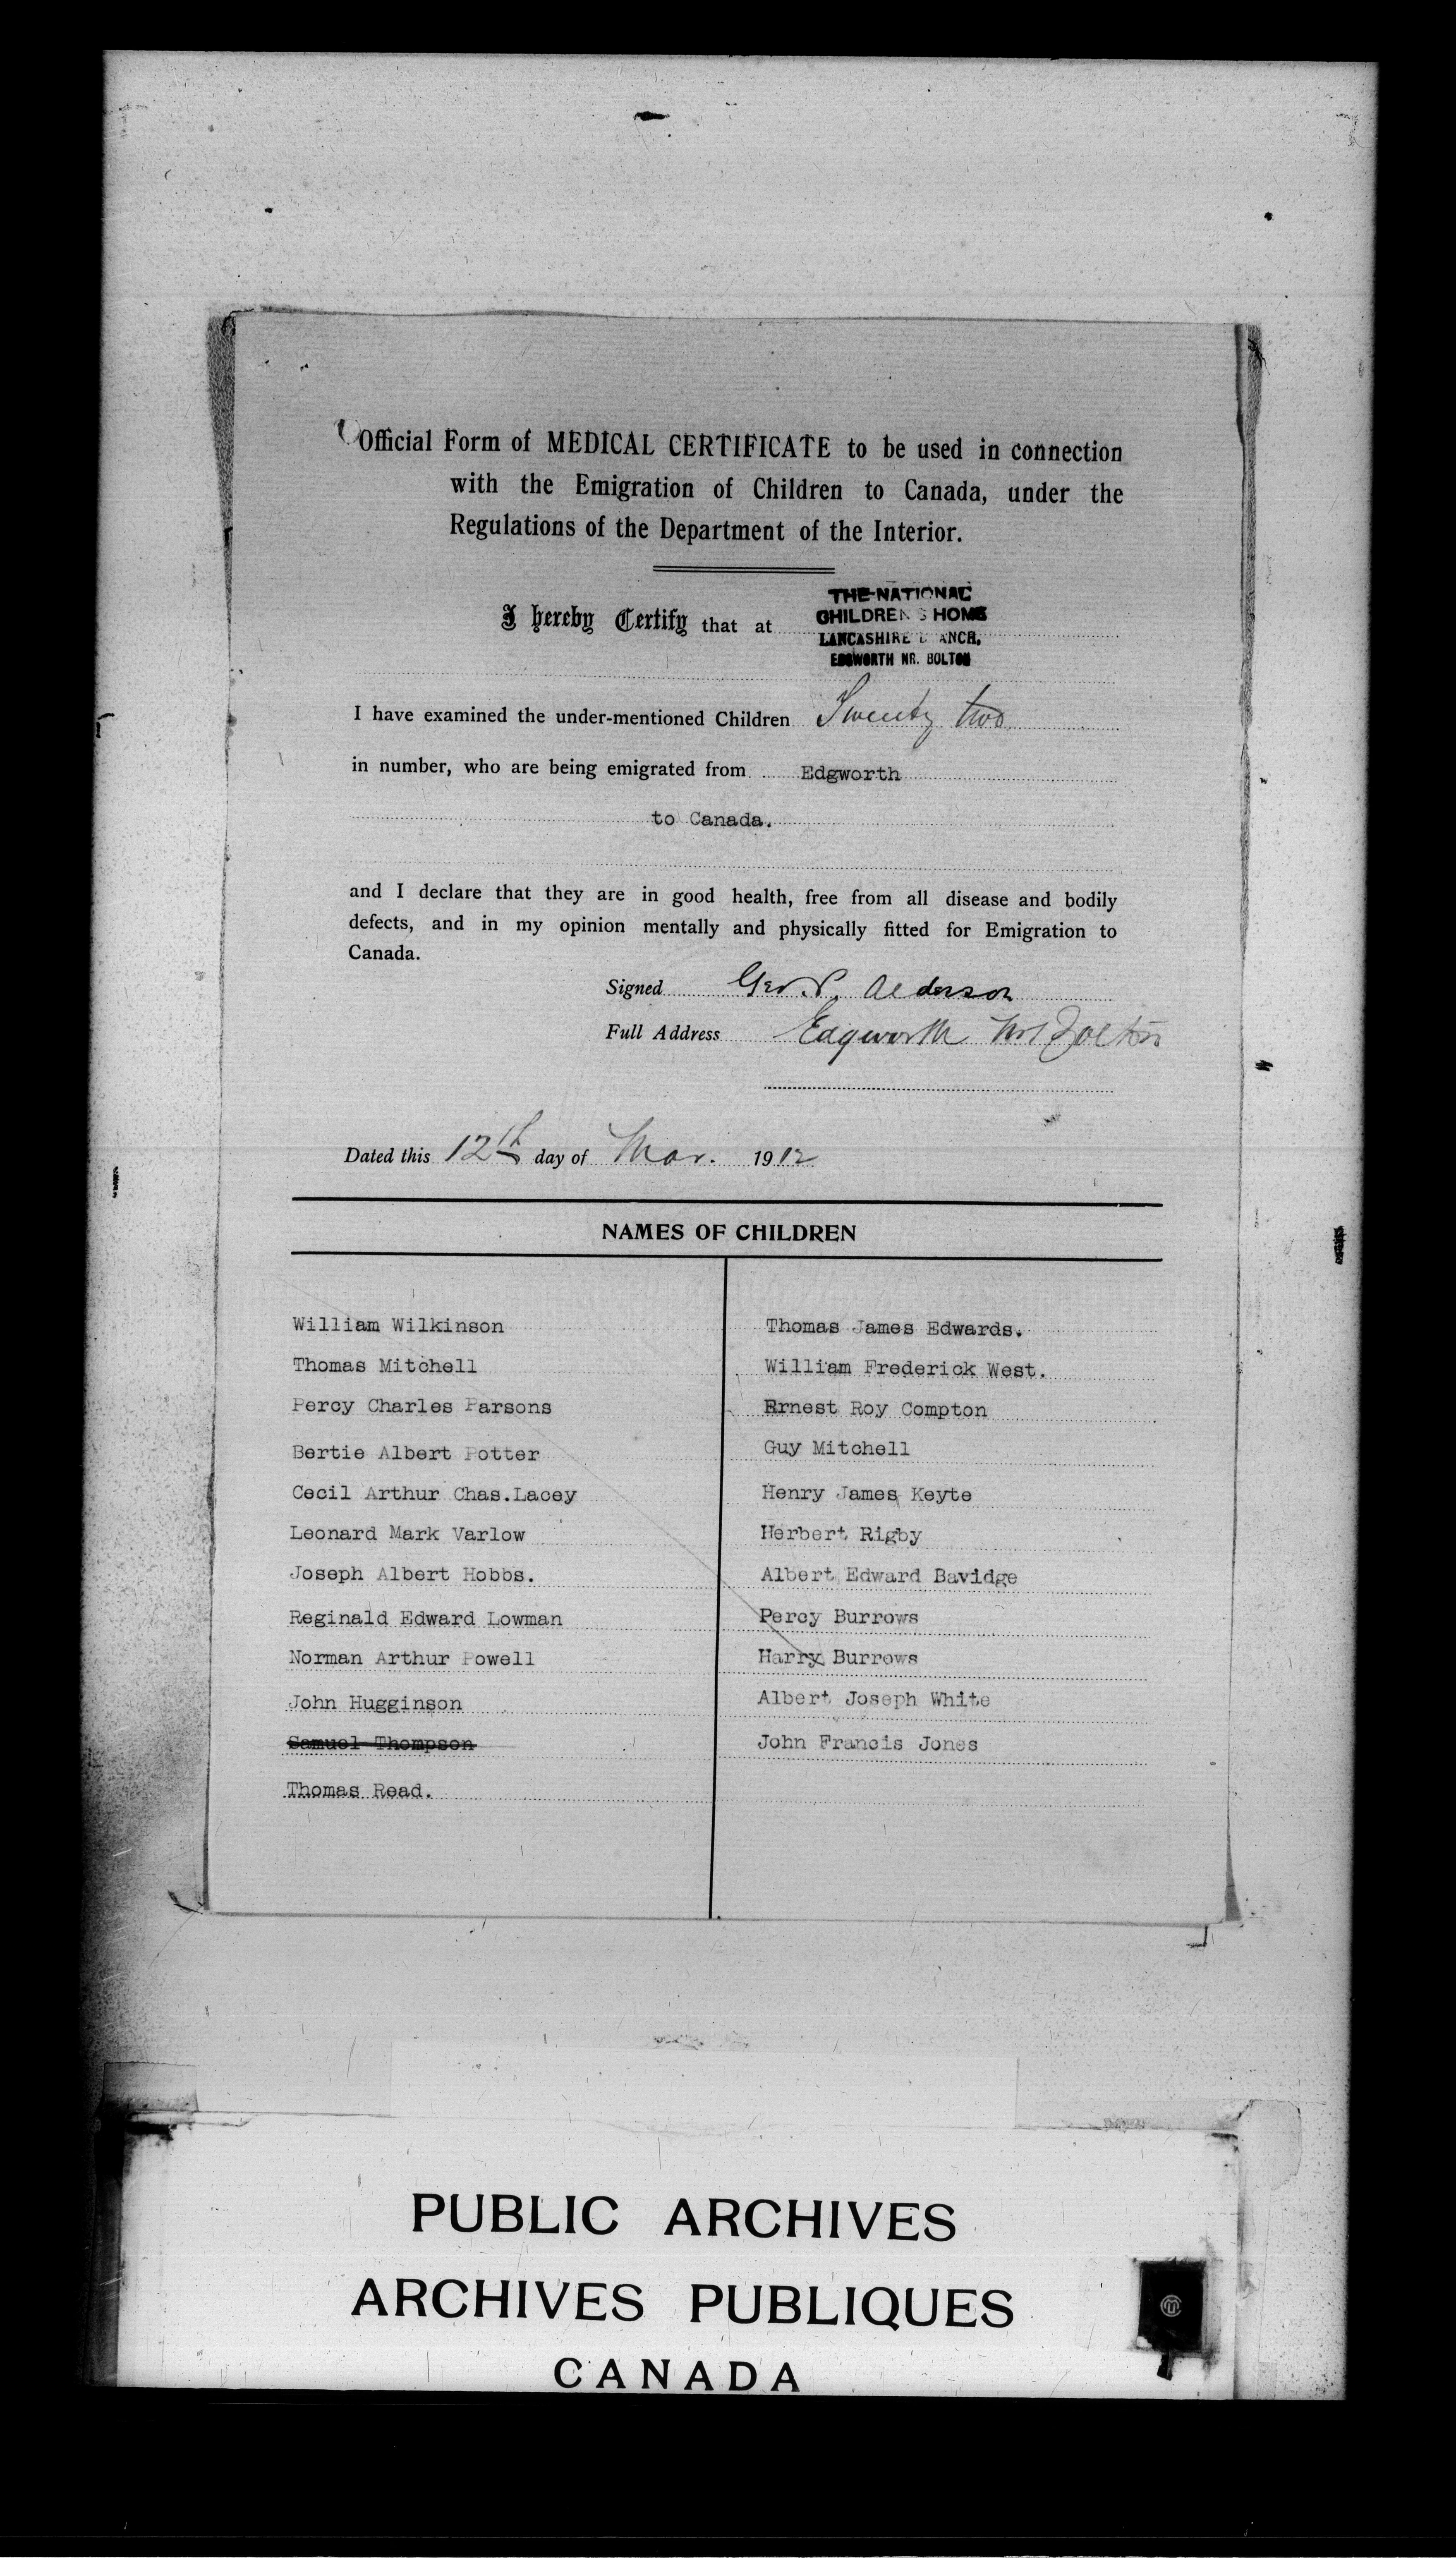 Official Form of MEDICAL CERTIFICATE to be used in connection
with the Emigration of Children to Canada, under the
Regulations of the Department of the Interior.
I hereby Certify that at
THE NATIONAL
CHILDREN S HOME
LANCASHIRE B ANCH,
EDGWORTH NR. BOLTON
I have examined the under-mentioned Children Twenty two
in number, who are being emigrated from Edgworth
to Canada.
and I declare that they are in good health, free from all disease and bodily
defects, and in my opinion mentally and physically fitted for Emigration to
Canada.
Signed Geo. P. Alderson
Full Address Edgworth Nr Bolton
Dated this 12th day of Mar. 1912
NAMES OF CHILDREN
William Wilkinson
Thomas Mitchell
Percy Charles Parsons
Bertie Albert Potter
Cecil Arthur Chas.Lacey
Leonard Mark Varlow
Joseph Albert Hobbs.
Reginald Edward Lowman
Norman Arthur Powell
John Hugginson
Samuel Thompson
Thomas Read.
Thomas James Edwards.
William Frederick West.
Ernest Roy Compton
Guy Mitchell
Henry James Keyte
Herbert Rigby
Albert Edward Bavidge
Percy Burrows
Harry Burrows
Albert Joseph White
John Francis Jones
PUBLIC ARCHIVES
ARCHIVES PUBLIQUES
CANADA